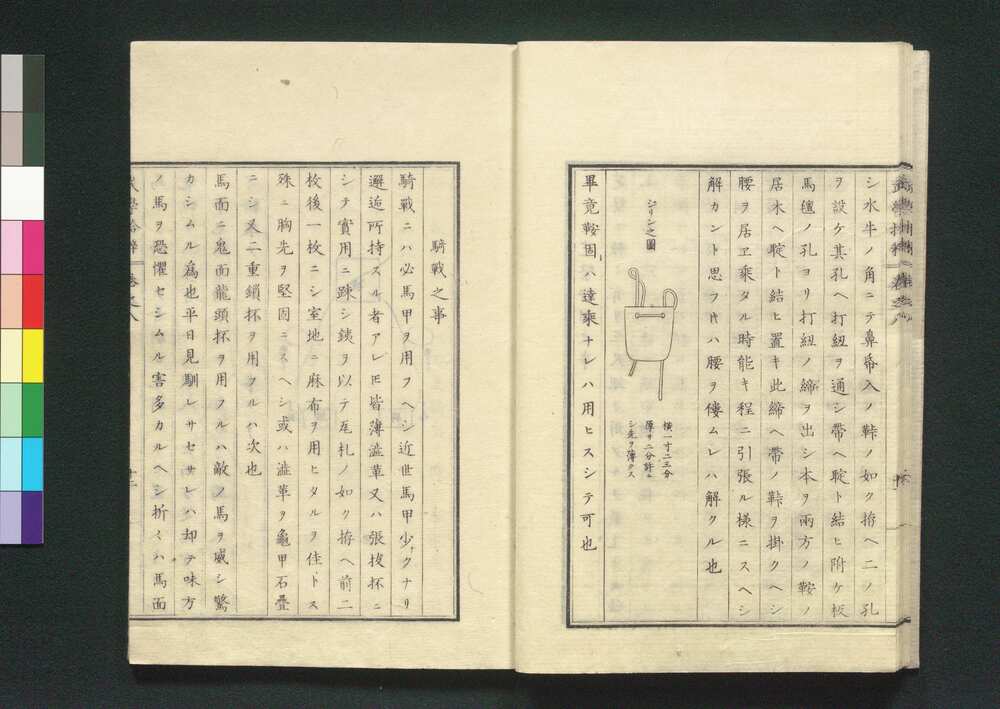 シ水牛ノ角ニテ鼻帋入ノ鞐ノ如ク拵ヘ二ノ孔
ヲ設ケ其孔ヘ打紐ヲ通シ帶ヘ聢ト結ヒ附ケ板
馬氊ノ孔ヨリ打紐ノ締ヲ出シ本ヲ兩方ノ鞍ノ
居木ヘ聢ト結ヒ置キ此締ヘ帶ノ鞐ヲ掛クヘシ
腰ヲ居ヱ乗タル時能キ程ニ引張ル樣ニスヘシ
解カント思フ時ハ腰ヲ僂ムレハ解クル也
シリン之圖
横一寸二三分
厚サ二分許
シ先ヲ薄クス
畢竟鞍固ハ達乗ナレハ用ヒスシテ可也
騎戰之事
騎戰ニハ必馬甲ヲ用フヘシ近世馬甲少クナリ
邂逅所持スル者アレ𪜈皆薄澁革又ハ張抜抔ニ
シテ實用ニ踈シ鉄ヲ以テ尾札ノ如ク拵ヘ前二
枚後一枚ニシ室地ニ麻布ヲ用ヒタルヲ佳トス
殊ニ胸先ヲ堅固ニスヘシ或ハ澁革ヲ龜甲石疊
ニシ又二重鎖抔ヲ用フルハ次也
馬面ニ鬼面龍頭抔ヲ用フルハ敵ノ馬ヲ威シ驚
カシムル爲也平日見馴レサセサレハ却テ味方
ノ馬ヲ恐懼セシムル害多カルヘシ折々ハ馬面